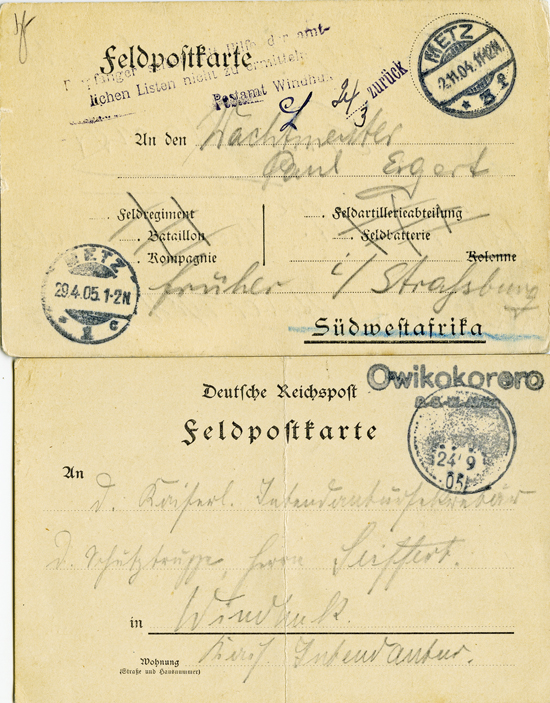 Feldpostkarte
Empfänger mit Hilfe der amt-
lichen Listen nicht zu ermitteln
Postamt Windhuk
zurück
24/3
METZ
2.11.04. 11-12N.
* 3 f
An den Wachtmeister
Paul Ergert
Feldregiment
Feldartillerieabteilung
Bataillon
Feldbatterie
Kompagnie
Kolonne
METZ
29.4.05. 1-2N
* 1 c
früher i/ Strassburg
Südwestafrika
Owikokorero
Deutsche Reichspost
Feldpostkarte
24/9
05
An
d. Kaiserl. Intendantursekretär
d. Schutztruppe, Herrn Seiffert.
in Windhuk.
Kais. Intendantur.
Wohnung
(Straße und Hausnummer)